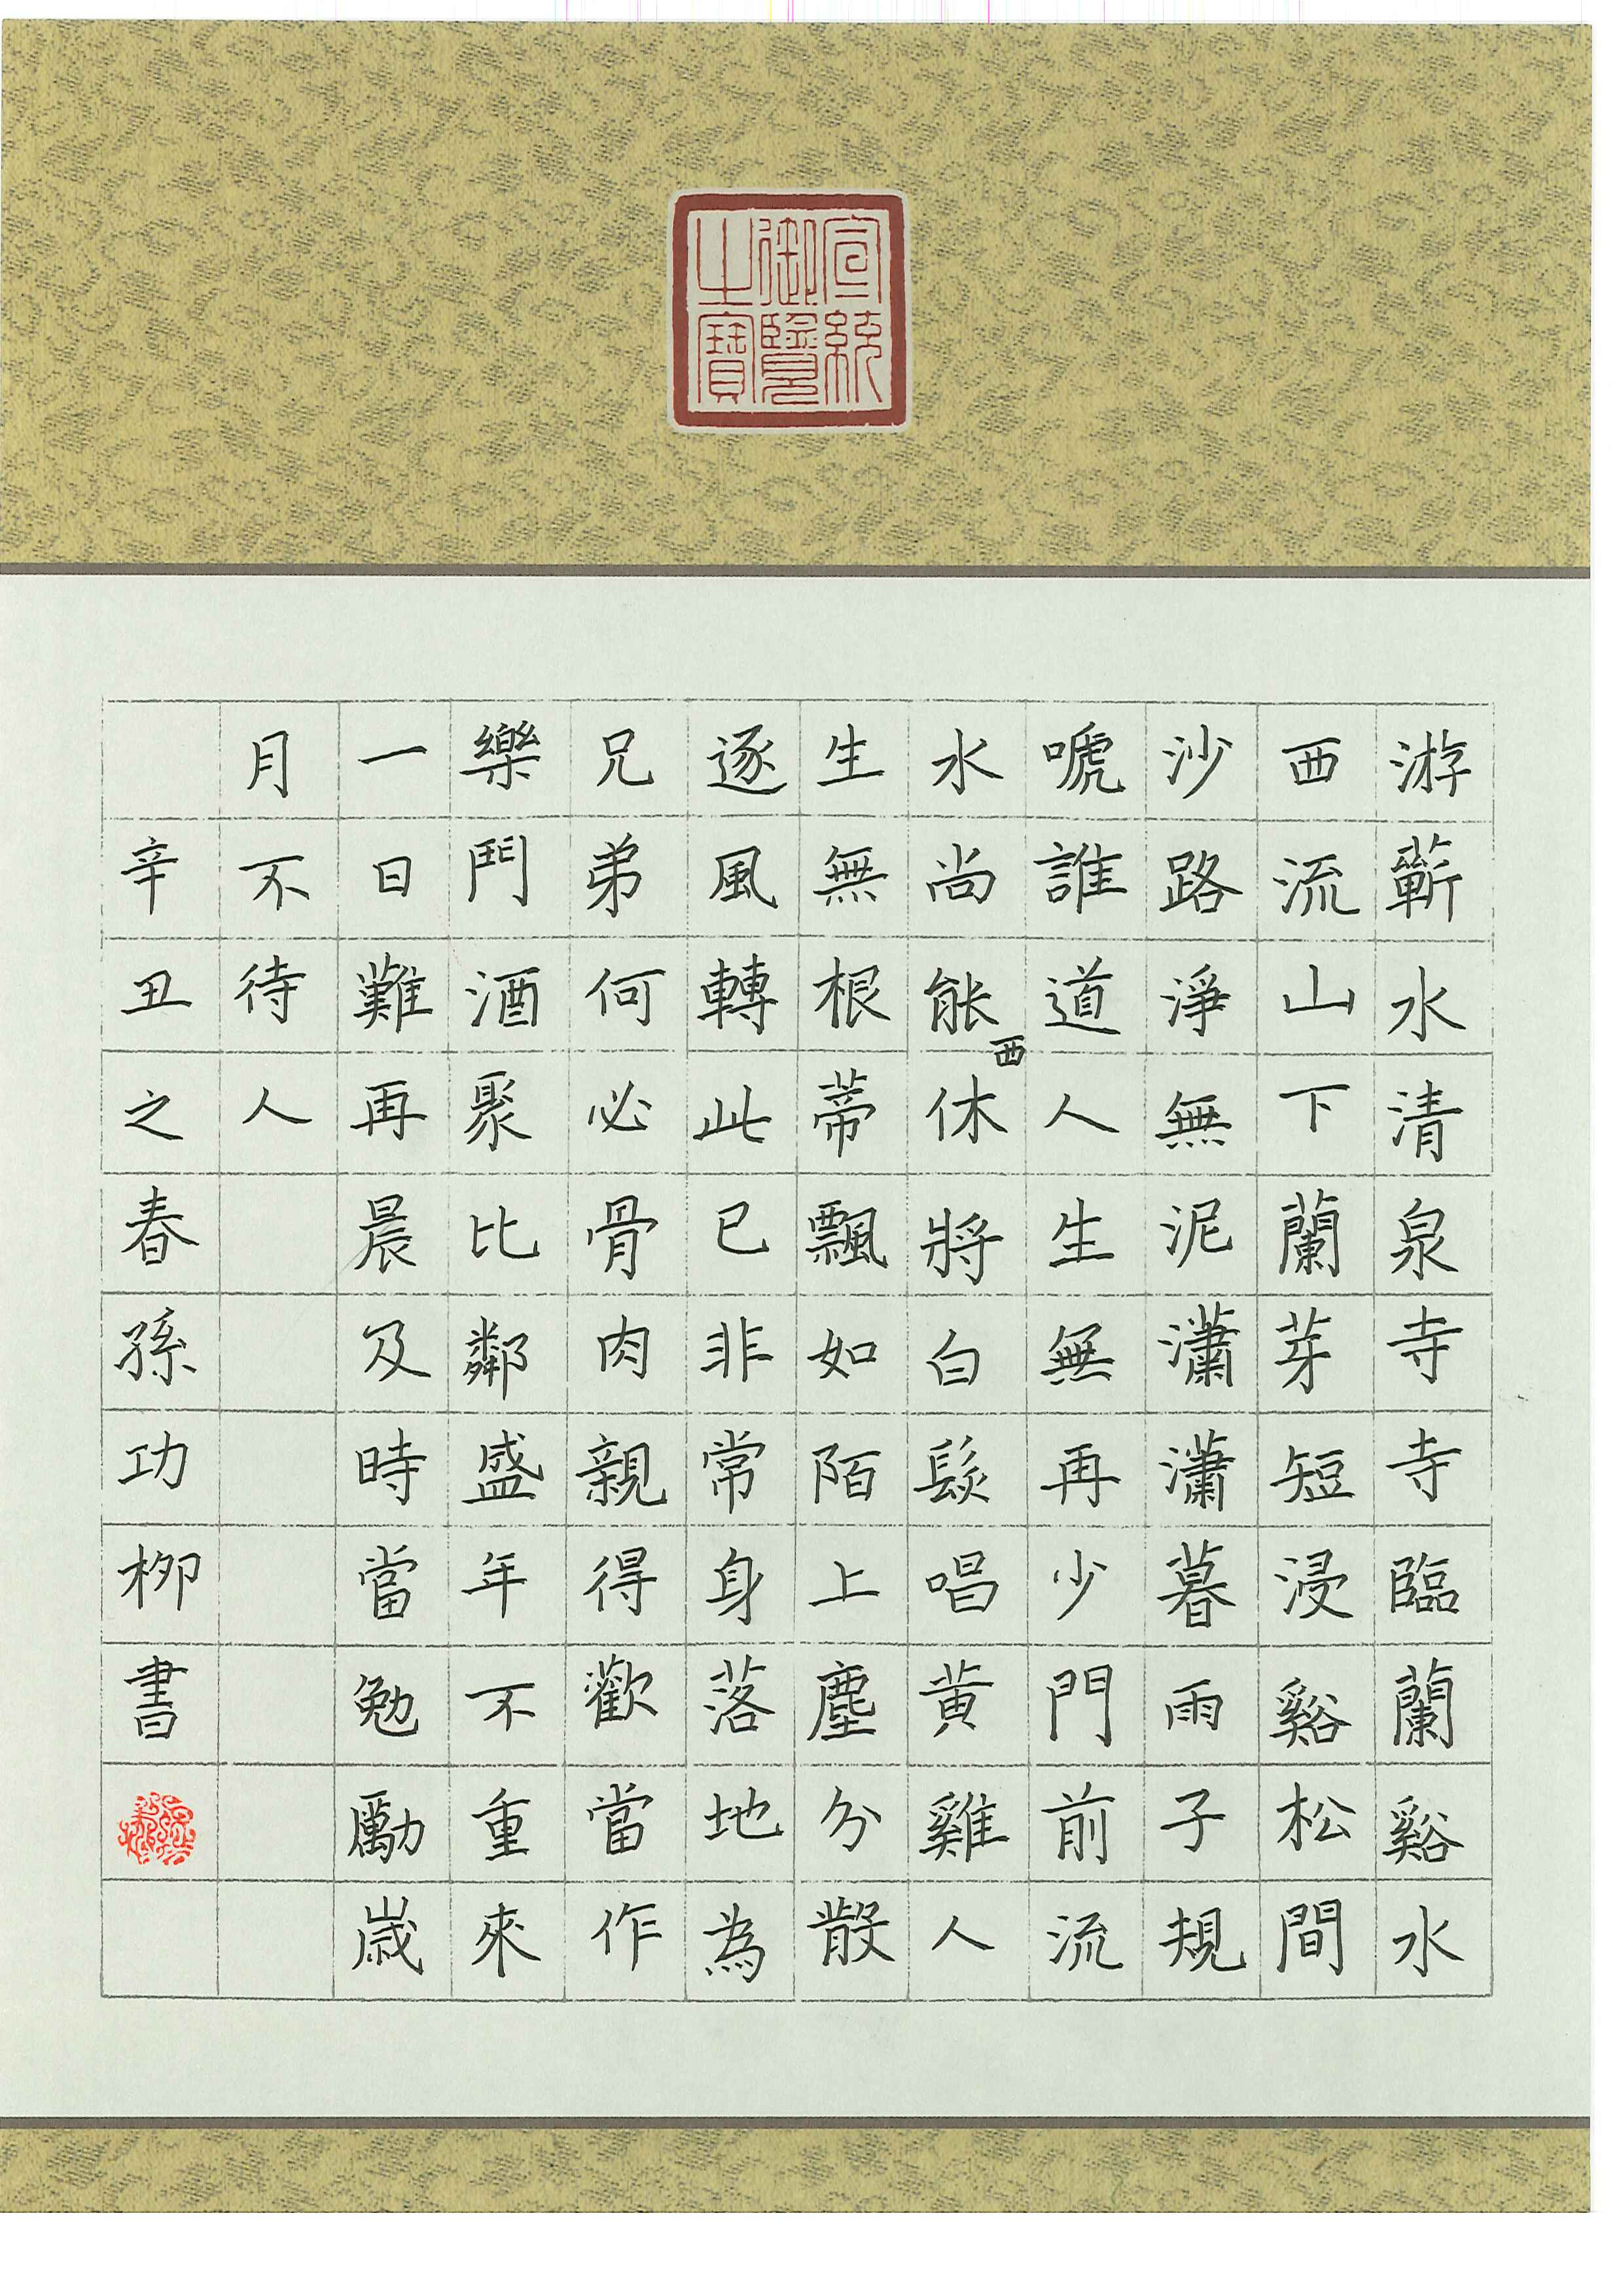 宣統
御覽
之寶
游蘄水清泉寺寺臨蘭谿水
西流山下蘭芽短浸谿松間
沙路淨無泥瀟瀟暮雨子規
嗁誰道人生無再少門前流
水尚能西休將白髮唱黄雞人
生無根蒂飄如陌上塵分散
逐風轉此已非常身落地為
兄弟何必骨肉親得歡當作
樂鬥酒聚比鄰盛年不重來
一日難再晨及時當勉勵歲
月不待人
辛丑之春孫功柳書